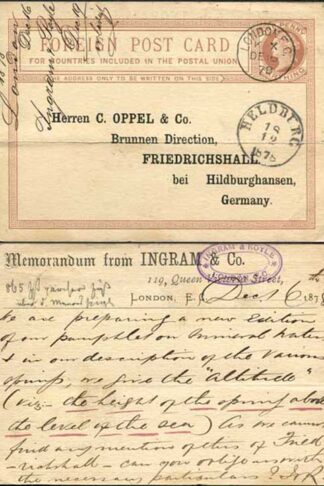 FOREIGN POST CARD
FOR COUNTRIES INCLUDED IN THE POSTAL UNION.
THE ADDRESS ONLY TO BE WRITTEN ON THIS SIDE
LONDON E.C
X
DE
PENNY
Ingram
London
Herren C. OPPEL & Co.
Brunnen Direction,
FRIEDRICHSHALL
bei Hildburghansen,
Germany.
HELDBURG
Memorandum from INGRAM & Co.
INGRAM & ROYLE
LONDON E.C.
119, Queen Street,
LONDON, E. Dec 16 187
We are preparing a new Edition
of our pamphlet on Mineral Waters
& in our description of the Various
springs, we give the "Altitude"
(viz:- the height of the spring above
the level of the sea) As we cannot
find any mention of this of Fried-
richshall - can you oblige us with
the necessary particulars? I & R